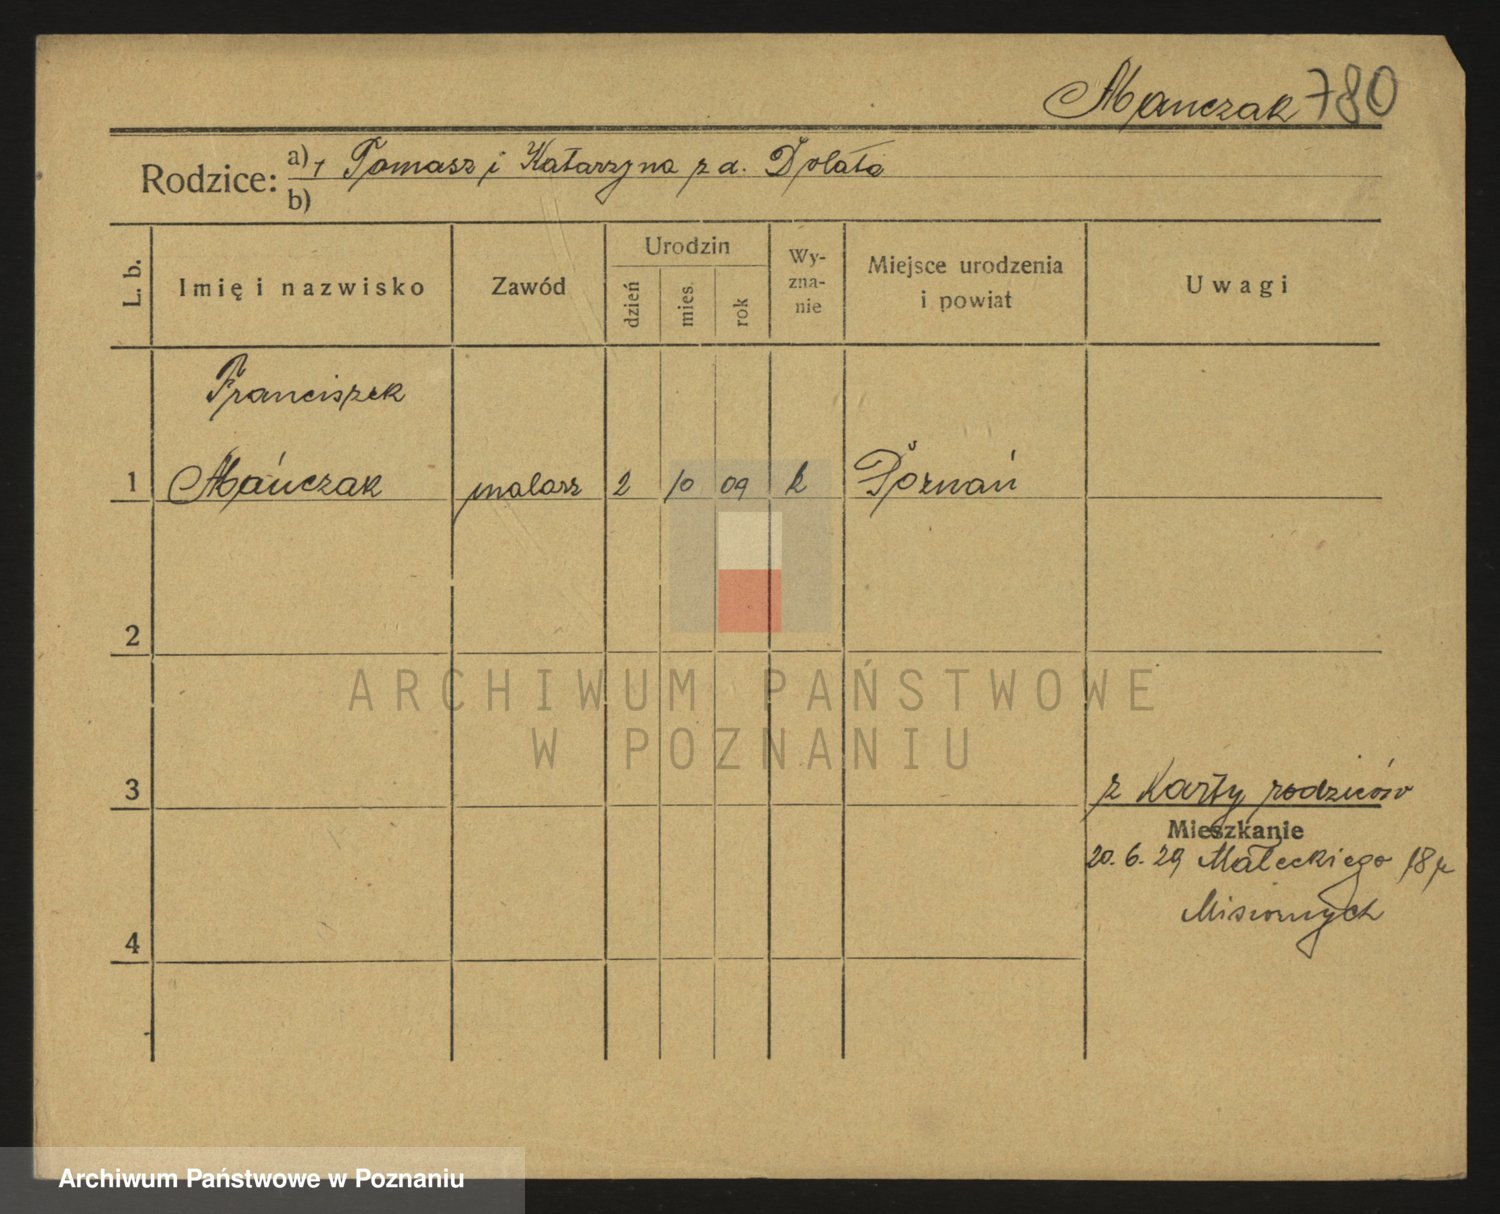 Mańczak 780
Rodzice: a) 1 Tomasz i Katarzyna z d. Dolata
b)
L. b. Imię i nazwisko Zawód Urodzin dzień mies. rok Wy-zna-nie Miejsce urodzenia i powiat Uwagi
Franciszek
1 Mańczak malarz 2 10 09 k Poznań
2
ARCHIWUM PAŃSTWOWE
W POZNANIU
3 z Karty rodziców
Mieszkanie
20. 6. 29 Małeckiego 18
Misiornych
4
Archiwum Państwowe w Poznaniu